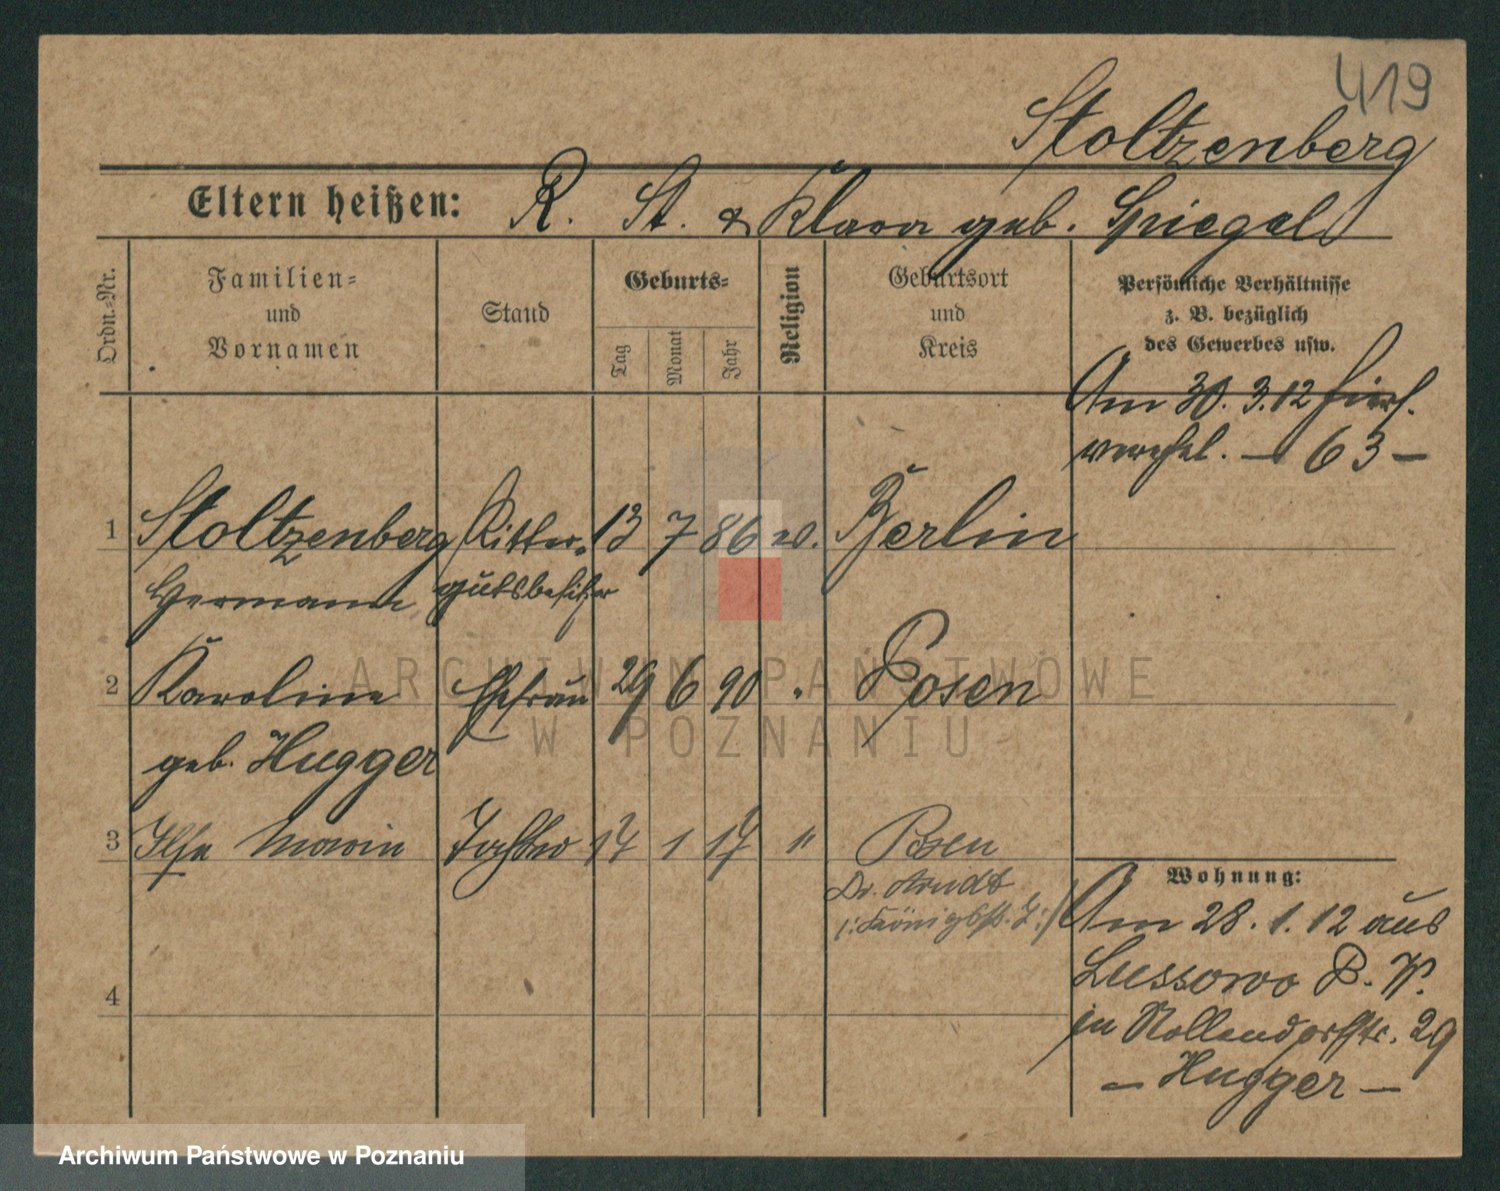 419
Stoltzenberg
Eltern heißen: R. St. & Klara geb. Spiegel
Ordn.-Nr.
Familien-
und
Vornamen
Stand
Geburts-
Tag
Monat
Jahr
Religion
Geburtsort
und
Kreis
Persönliche Verhältnisse
z. B. bezüglich
des Gewerbes usw.
Am 30. 3. 12 hiers.
verehel. — 63 —
1 Stoltzenberg Ritter- 13 7 86 ev. Berlin
Hermann gutsbesitzer
2 Karoline Ehefrau 29 6 90 " Posen
geb. Hugger
3 Ilse Marie Tochter 1 " Posen
Dr. Arndt
Wohnung:
Am 28. 1. 12 aus
Lussowo P. W.
in Nollendorfstr. 29
— Hugger —
4
ARCHIWUM PAŃSTWOWE
W POZNANIU
Archiwum Państwowe w Poznaniu